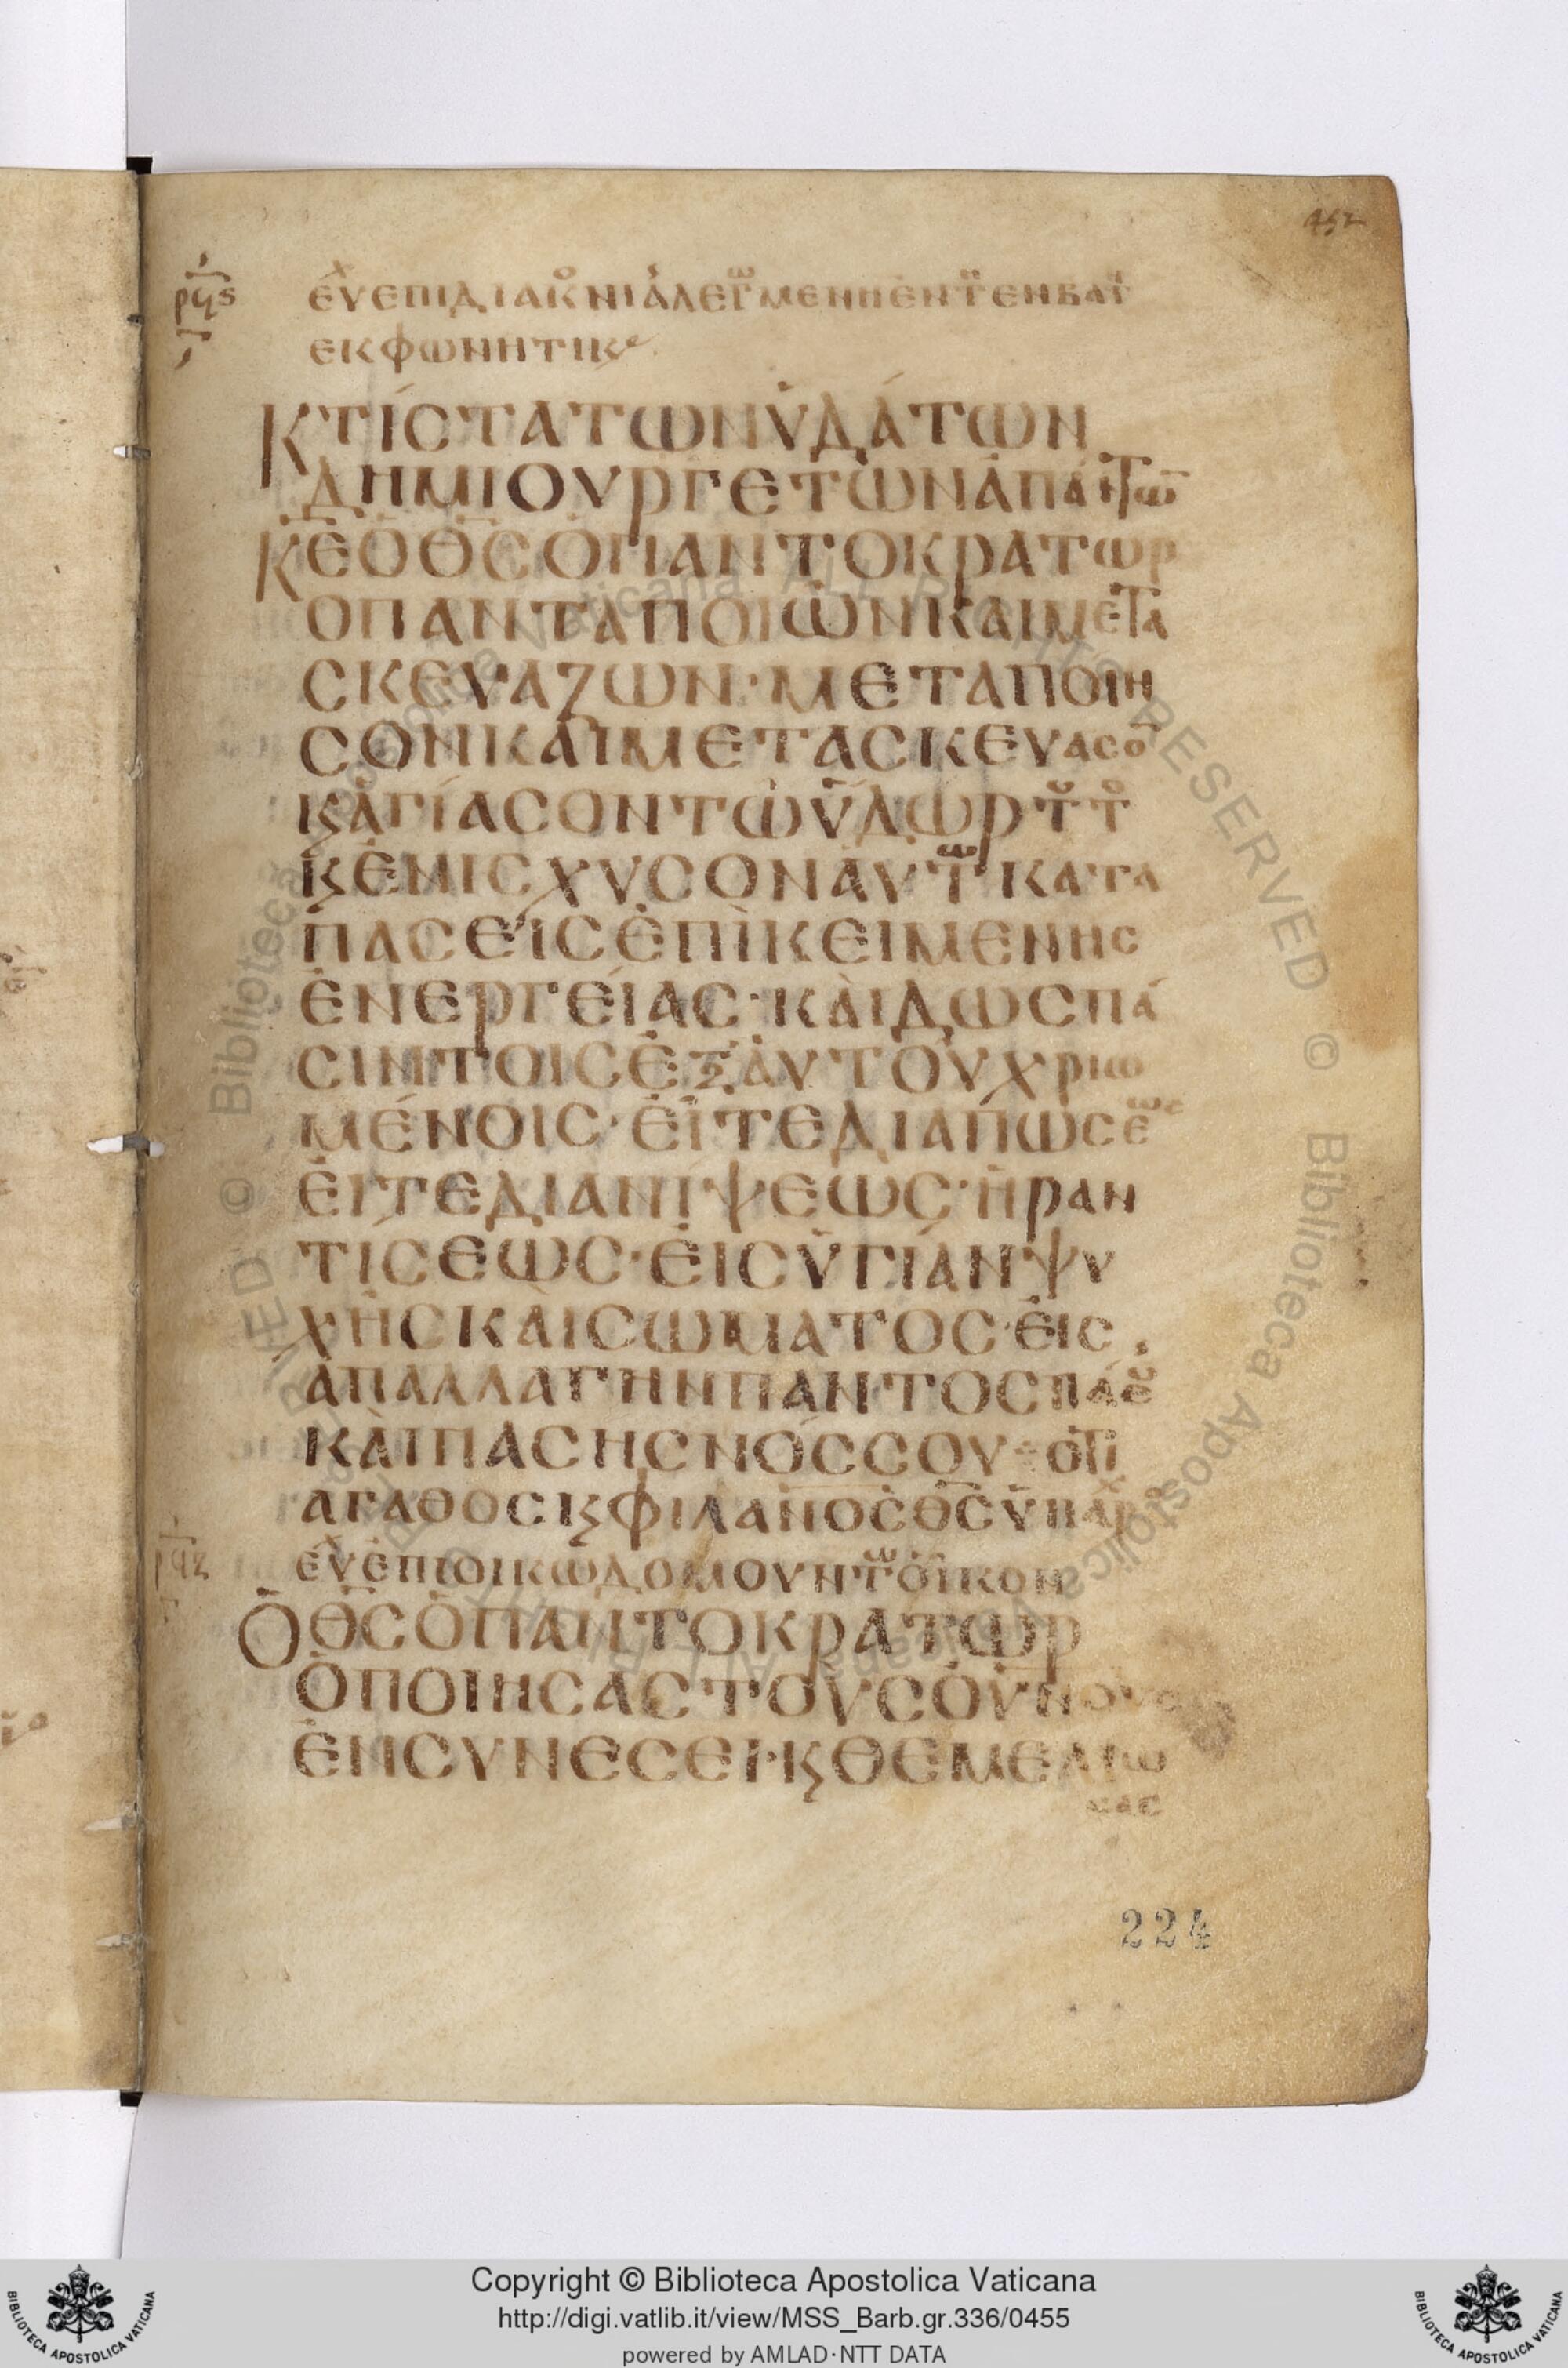 452
ρϟϛ
ΕΥΧ ΕΠΙ ΔΙΑΚΟΝΙΑ ΛΕΓΩΜΕΝΗ ΕΝ Τ ΕΝ ΒΑΤ
ΕΚΦΩΝΗΤΙΚ
ΚΤΙΣΤΑ ΤΩΝ ΥΔΑΤΩΝ
ΔΗΜΙΟΥΡΓΕ ΤΩΝ ΑΠΑΝΤΩ̅
Κ̅Ε̅ Ο Θ̅Σ̅ Ο ΠΑΝΤΟΚΡΑΤΩΡ
Ο ΠΑΝΤΑ ΠΟΙΩΝ ΚΑΙ ΜΕΤΑ
ΣΚΕΥΑΖΩΝ· ΜΕΤΑΠΟΙΗ
ΣΟΝ ΚΑΙ ΜΕΤΑΣΚΕΥΑΣΟ̅
Ϗ ΑΓΙΑΣΟΝ ΤΩ ΥΔΩΡ ΤΟΥΤΟ
Ϗ ΕΝΙΣΧΥΣΟΝ ΑΥΤΩ ΚΑΤΑ
ΠΑΣΕΙΣ ΕΠΙΚΕΙΜΕΝΗΣ
ΕΝΕΡΓΕΙΑΣ· ΚΑΙ ΔΩΣ ΠΑ
ΣΙΝ ΤΟΙΣ ΕΞ ΑΥΤΟΥ ΧΡΙΩ
ΜΕΝΟΙΣ· ΕΙΤΕ ΔΙΑ ΠΩΣΕΩΣ
ΕΙΤΕ ΔΙΑ ΝΙΨΕΩΣ· Η ΡΑΝ
ΤΙΣΕΩΣ· ΕΙΣ ΥΓΙΑΝ ΨΥ
ΧΗΣ ΚΑΙ ΣΩΜΑΤΟΣ· ΕΙΣ
ΑΠΑΛΛΑΓΗΝ ΠΑΝΤΟΣ ΠΑΘΟΥ
ΚΑΙ ΠΑΣΗΣ ΝΟΣΣΟΥ· ΟΤΙ
ΑΓΑΘΟΣ Ϗ ΦΙΛΑΝΟΣ Θ̅Σ̅ ΥΠΑΡΧ
ρϟζ
ΕΥΧ ΕΠΙ ΟΙΚΩΔΟΜΟΥΝΤΩ ΟΙΚΟΝ
Ο Θ̅Σ̅ Ο ΠΑΝΤΟΚΡΑΤΩΡ
Ο ΠΟΙΗΣΑΣ ΤΟΥΣ ΟΥ̅Ν̅ΟΥΣ
ΕΝ ΣΥΝΕΣΕΙ· Ϗ ΘΕΜΕΛΙΩ
ΣΑΣ
224
Copyright © Biblioteca Apostolica Vaticana
http://digi.vatlib.it/view/MSS_Barb.gr.336/0455
powered by AMLAD·NTT DATA
BIBLIOTECA APOSTOLICA VATICANA
BIBLIOTECA APOSTOLICA VATICANA